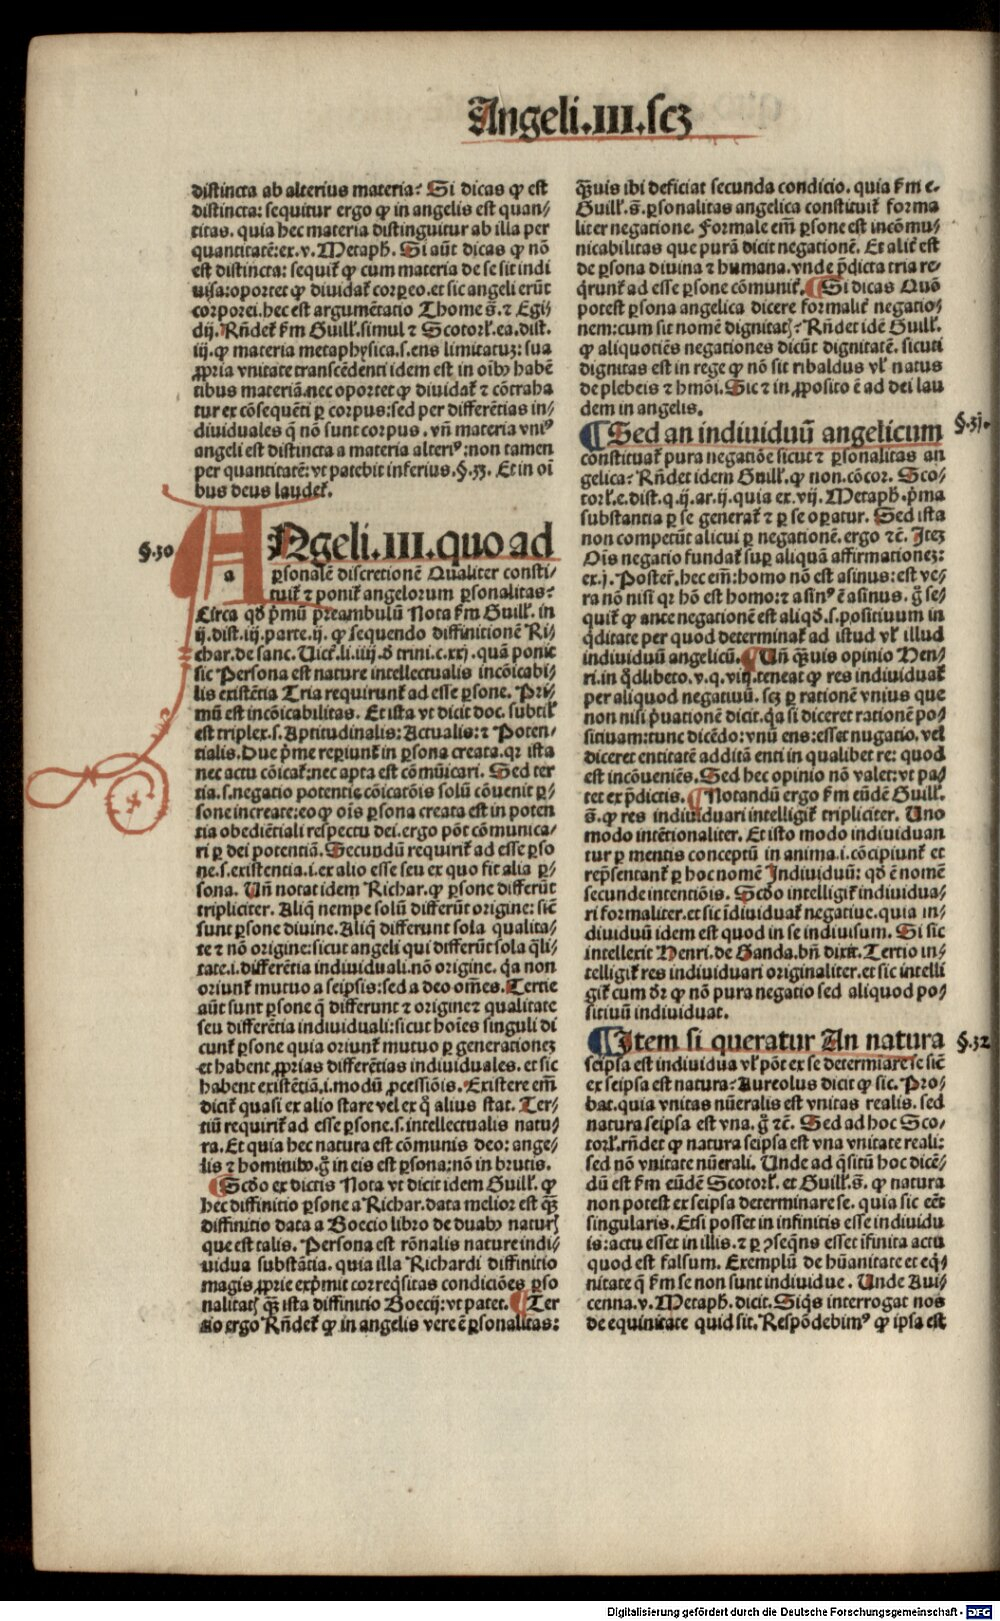 Angeli.III.scʒ
distincta ab alterius materia? Si dicas ꝙ est
distincta: sequitur ergo ꝙ in angelis est quan⸗
titas. quia hec materia distinguitur ab illa per
quantitatē:ex.v.Metaph. Si aūt dicas ꝙ nō
est distincta: sequiť ꝙ cum materia de se sit indi
uisa:oportet ꝙ diuidať corpeo.et sic angeli erūt
corporei.hec est argumētatio Thome s̄. ⁊ Egi⸗
dij. Rn̄deť ẜm Guilľ.simul ⁊ Scotorľ.ea.dist.
iij.ꝙ materia metaphysica.s.ens limitatuʒ: sua
ꝓpria vnitate transcēdenti idem est in oībꝰ habē
tibus materiā.nec oportet ꝙ diuidať ⁊ cōtraha
tur ex cōsequēti ꝑ corpus:sed per differētias in⸗
diuiduales q̄ nō sunt corpus. vn̄ materia vniꝰ
angeli est distincta a materia alteriꝰ:non tamen
per quantitatē: vt patebit inferius.§.33. Et in oī
bus deus laudeť.
§.30
ANgeli.III.quo ad
a
ꝑsonalē discretionē Qualiter consti⸗
tuiť ⁊ poniť angelorum ꝑsonalitas?
Circa qd̄ p̄mū preambulū Nota ẜm Guilľ. in
ij.dist.iij.parte.ij. ꝙ sequendo diffinitionē Ri⸗
char.de sanc.Vict.li.iiij.đ trini.c.xxj.quā ponit
sic Persona est nature intellectualis incōicabi⸗
lis existētia Tria requirunť ad esse ꝑsone. Pri⸗
mū est incōicabilitas. Et ista vt dicit doc. subtiľ
est triplex.s.Aptitudinalis:Actualis:⁊ Poten⸗
tialis.Due p̄me reꝑiunť in ꝑsona creata.qꝛ ista
nec actu cōicať:nec apta est cōmūicari. Sed ter
tia.s.negatio potentie cōicatōis solū cōuenit ꝑ⸗
sone increate:eo ꝙ oīs ꝑsona creata est in poten
tia obediētiali respectu dei.ergo pōt cōmunica⸗
ri ꝑ dei potentiā. Secundū requiriť ad esse ꝑso
ne.s.existentia.i.ex alio esse seu ex quo fit alia ꝑ⸗
sona. Vn̄ notat idem Richar.ꝙ ꝑsone differūt
tripliciter. Aliq̄ nempe solū differūt origine: sic̄
sunt ꝑsone diuine.Aliq̄ differunt sola qualita⸗
te ⁊ nō origine:sicut angeli qui differūt sola q̄li⸗
tate.i.differētia indiuiduali.nō origine. q̄a non
oriunť mutuo a seipsis:sed a deo om̄es.Tertie
aūt sunt ꝑsone q̄ differunt ⁊ origine⁊ qualitate
seu differētia indiuiduali:sicut hoīes singuli di
cunť ꝑsone quia oriunť mutuo ꝑ generationeʒ
et habent ꝓprias differētias indiuiduales. et sic
habent existētiā.i.modū ꝓcessiōis. Existere em̄
diciť quasi ex alio stare vel ex q̊ alius stat. Ter⸗
tiū requiriť ad esse ꝑsone.s.intellectualis natu⸗
ra. Et quia hec natura est cōmunis deo: ange⸗
lis ⁊ hominibꝰ.g̊ in eis est ꝑsona:nō in brutis.
¶Scđo ex dictis Nota vt dicit idem Guilľ. ꝙ
hec diffinitio ꝑsone a Richar.data melior est q̄ʒ
diffinitio data a Boecio libro de duabꝰ naturꝭ
que est talis. Persona est rōnalis nature indi⸗
uidua substātia. quia illa Richardi diffinitio
magis ꝓprie exp̄mit correq̄sitas condiciōes ꝑso
nalitatꝭ q̄ʒ ista diffinitio Boecij: vt patet. ¶Ter
tio ergo Rn̄deť ꝙ in angelis vere ē ꝑsonalitas:
q̄ʒuis ibi deficiat secunda condicio. quia ẜm e.
Guilľ.s̄. ꝑsonalitas angelica constituiť forma
liter negatione. Formale em̄ ꝑsone est incōmu⸗
nicabilitas que purā dicit negationē. Et aliť est
de ꝑsona diuina ⁊ humana.vnde p̄dicta tria re⸗
q̄runť ad esse ꝑsone cōmuniť. ¶Si dicas Quō
potest ꝑsona angelica dicere formaliť negatio⸗
nem:cum sit nomē dignitatꝭ? Rn̄det idē Guilľ.
ꝙ aliquotiēs negationes dicūt dignitatē. sicuti
dignitas est in rege ꝙ nō sit ribaldus vľ natus
de plebeis ⁊ hmōi.Sic ⁊ in ꝓposito ē ad dei lau
dem in angelis.
¶Sed an indiuiduū angelicum
§.3j.
constituať pura negatiōe sicut ⁊ ꝑsonalitas an
gelica? Rn̄det idem Guilľ.ꝙ non.cōcor. Sco⸗
torľ.e.dist.q.ij.ar.ij.quia ex.vij. Metaph.p̄ma
substantia ꝑ se generať ⁊ ꝑ se oꝑatur. Sed ista
non competūt alicui ꝑ negationē.ergo ⁊c̄. Iteʒ
Oīs negatio fundať suꝑ aliquā affirmationeʒ:
ex.j. Posteř.hec em̄:homo nō est asinus:est ve⸗
ra nō nisi qꝛ hō est homo:⁊ asinꝰ ē asinus. g̊ se⸗
quiť ꝙ ante negationē est aliqd̄.s.positiuum in
q̄ditate per quod determinať ad istud vľ illud
indiuiduū angelicū. ¶Vn̄ q̄ʒuis opinio Hen⸗
ri.in q̊dlibeto.v.q.viij.teneat ꝙ res indiuiduať
per aliquod negatiuū. scʒ ꝑ rationē vnius que
non nisi p̄uationē dicit.q̄a si diceret rationē po⸗
sitiuam:tunc dicēdo:vnū ens:esset nugatio. vel
diceret entitatē additā enti in qualibet re: quod
est incōueniēs.Sed hec opinio nō valet:vt pa⸗
tet ex p̄dictis. ¶Notandū ergo ẜm eūdē Guilľ.
s̄.ꝙ res indiuiduari intelligiť tripliciter. Uno
modo intētionaliter. Et isto modo indiuiduan
tur ꝑ mentis conceptū in anima.i.cōcipiunť et
rep̄sentanť ꝑ hoc nomē Indiuiduū: qd̄ ē nomē
secunde intentiōis. Scđo intelligiť indiuidua⸗
ri formaliter.et sic īdiuiduať negatiue.quia in⸗
diuiduū idem est quod in se indiuisum. Si sic
intellexit Henri.de Ganda.bn̄ dixit. Tertio in⸗
telligiť res indiuiduari originaliter.et sic intelli
giť cum đr ꝙ nō pura negatio sed aliquod po⸗
sitiuū indiuiduat.
¶Item si queratur An natura
§.32
seipsa est indiuidua vľ pōt ex se determīare se sic̄
ex seipsa est natura? Aureolus dicit ꝙ sic. Pro⸗
bat.quia vnitas nūeralis est vnitas realis. sed
natura seipsa est vna. g̊ ⁊c̄. Sed ad hoc Sco⸗
torľ.rn̄det ꝙ natura seipsa est vna vnitate reali:
sed nō vnitate nūerali. Unde ad q̄sitū hoc dicē⸗
dū est ẜm eūdē Scotorľ. et Guilľ.s̄. ꝙ natura
non potest ex seipsa determinare se. quia sic eēt
singularis. Etsi posset in infinitis esse indiuidu
is:actu esset in illis.⁊ ꝑ ꝯseq̄ns esset īfinita actu
quod est falsum. Exemplū de hūanitate et eq̄⸗
nitate q̄ ẜm se non sunt indiuidue. Unde Aui⸗
cenna.v. Metaph. dicit. Siq̄s interrogat nos
de equinitate quid sit. Respōdebimꝰ ꝙ ipsa est
Digitalisierung gefördert durch die Deutsche Forschungsgemeinschaft - DFG